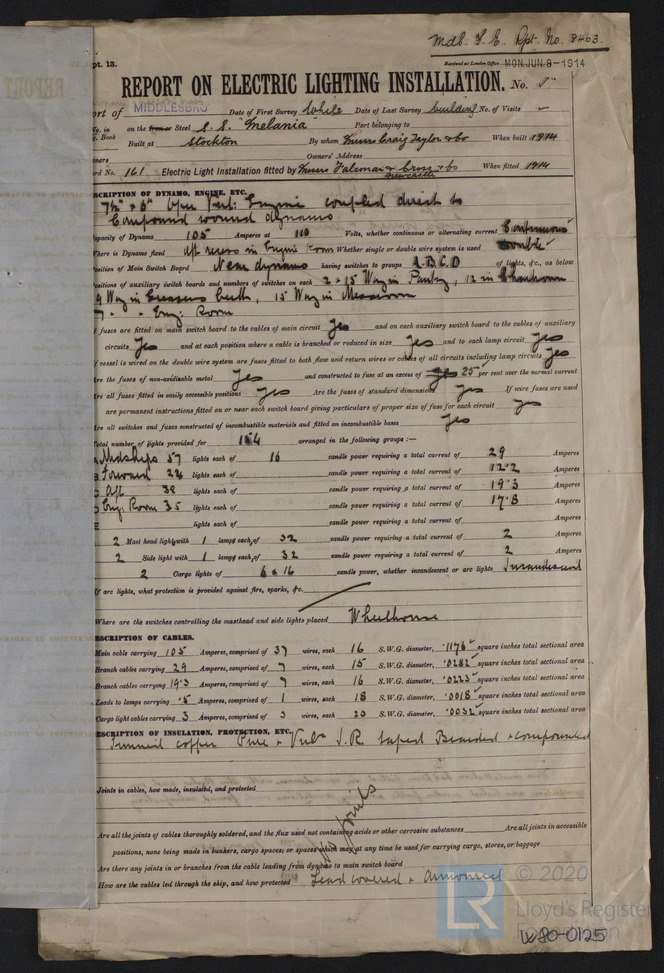 Mdb. S. E. Rpt. No. 8463.
pt. 13.
Received at London Office MON. JUN. 8 - 1914
REPORT ON ELECTRIC LIGHTING INSTALLATION. No. 5
ort of MIDDLESBRO Date of First Survey While Date of Last Survey building No. of Visits
No. in Book on the Iron or Steel S.S. "Melania Port belonging to
Built at Stockton By whom Messrs Craig Taylor & Co When built 1914
wners Owners' Address
rd No. 161 Electric Light Installation fitted by Messrs Falconar & Cross & Co Newcastle When fitted 1914
SCRIPTION OF DYNAMO, ENGINE, ETC.
7½" × 6" Open Vert: Engine coupled direct to
Compound wound dynamo
apacity of Dynamo 105 Amperes at 110 Volts, whether continuous or alternating current Continuous
Where is Dynamo fixed aft recess in Engine Room Whether single or double wire system is used double
osition of Main Switch Board Near dynamo having switches to groups A.B.C.D of lights, &c., as below
ositions of auxiliary switch boards and numbers of switches on each 2 = 15 Way in Pantry, 12 in Chartroom
9 Way in Greasers berth, 15 Way in Messroom
7 " " Eng: Room
f fuses are fitted on main switch board to the cables of main circuit Yes and on each auxiliary switch board to the cables of auxiliary
circuits Yes and at each position where a cable is branched or reduced in size Yes and to each lamp circuit Yes
f vessel is wired on the double wire system are fuses fitted to both flow and return wires or cables of all circuits including lamp circuits Yes
re the fuses of non-oxidizable metal Yes and constructed to fuse at an excess of 25 per cent over the normal current
re all fuses fitted in easily accessible positions Yes Are the fuses of standard dimensions Yes If wire fuses are used
are permanent instructions fitted on or near each switch board giving particulars of proper size of fuse for each circuit Yes
re all switches and fuses constructed of incombustible materials and fitted on incombustible bases Yes
otal number of lights provided for 154 arranged in the following groups :—
Midships 57 lights each of 16 candle power requiring a total current of 29 Amperes
B Forward 24 lights each of candle power requiring a total current of 12.2 Amperes
C Aft 38 lights each of candle power requiring a total current of 19.3 Amperes
D Eng Room 35 lights each of candle power requiring a total current of 17.8 Amperes
E lights each of candle power requiring a total current of Amperes
2 Mast head light with 1 lamps each of 32 candle power requiring a total current of 2 Amperes
2 Side light with 1 lamps each of 32 candle power requiring a total current of 2 Amperes
2 Cargo lights of 6 × 16 candle power, whether incandescent or arc lights Incandescent
f arc lights, what protection is provided against fire, sparks, &c.
Where are the switches controlling the masthead and side lights placed Wheelhouse
ESCRIPTION OF CABLES.
Main cable carrying 105 Amperes, comprised of 37 wires, each 16 S.W.G. diameter, .1176 square inches total sectional area
Branch cables carrying 29 Amperes, comprised of 7 wires, each 15 S.W.G. diameter, .0282 square inches total sectional area
Branch cables carrying 19.3 Amperes, comprised of 7 wires, each 16 S.W.G. diameter, .0225 square inches total sectional area
Leads to lamps carrying .5 Amperes, comprised of 1 wires, each 18 S.W.G. diameter, .0018 square inches total sectional area
Cargo light cables carrying 3 Amperes, comprised of 3 wires, each 20 S.W.G. diameter, .0032 square inches total sectional area
ESCRIPTION OF INSULATION, PROTECTION, ETC.
Tinned copper Pure & Vulc I.R. taped Braided & compounded
Joints in cables, how made, insulated, and protected
No joints
Are all the joints of cables thoroughly soldered, and the flux used not containing acids or other corrosive substances Are all joints in accessible
positions, none being made in bunkers, cargo spaces, or spaces which may at any time be used for carrying cargo, stores, or baggage
Are there any joints in or branches from the cable leading from dynamo to main switch board
How are the cables led through the ship, and how protected Lead covered & Armoured
LR © 2020
Lloyd's Register
Foundation
W80-0125